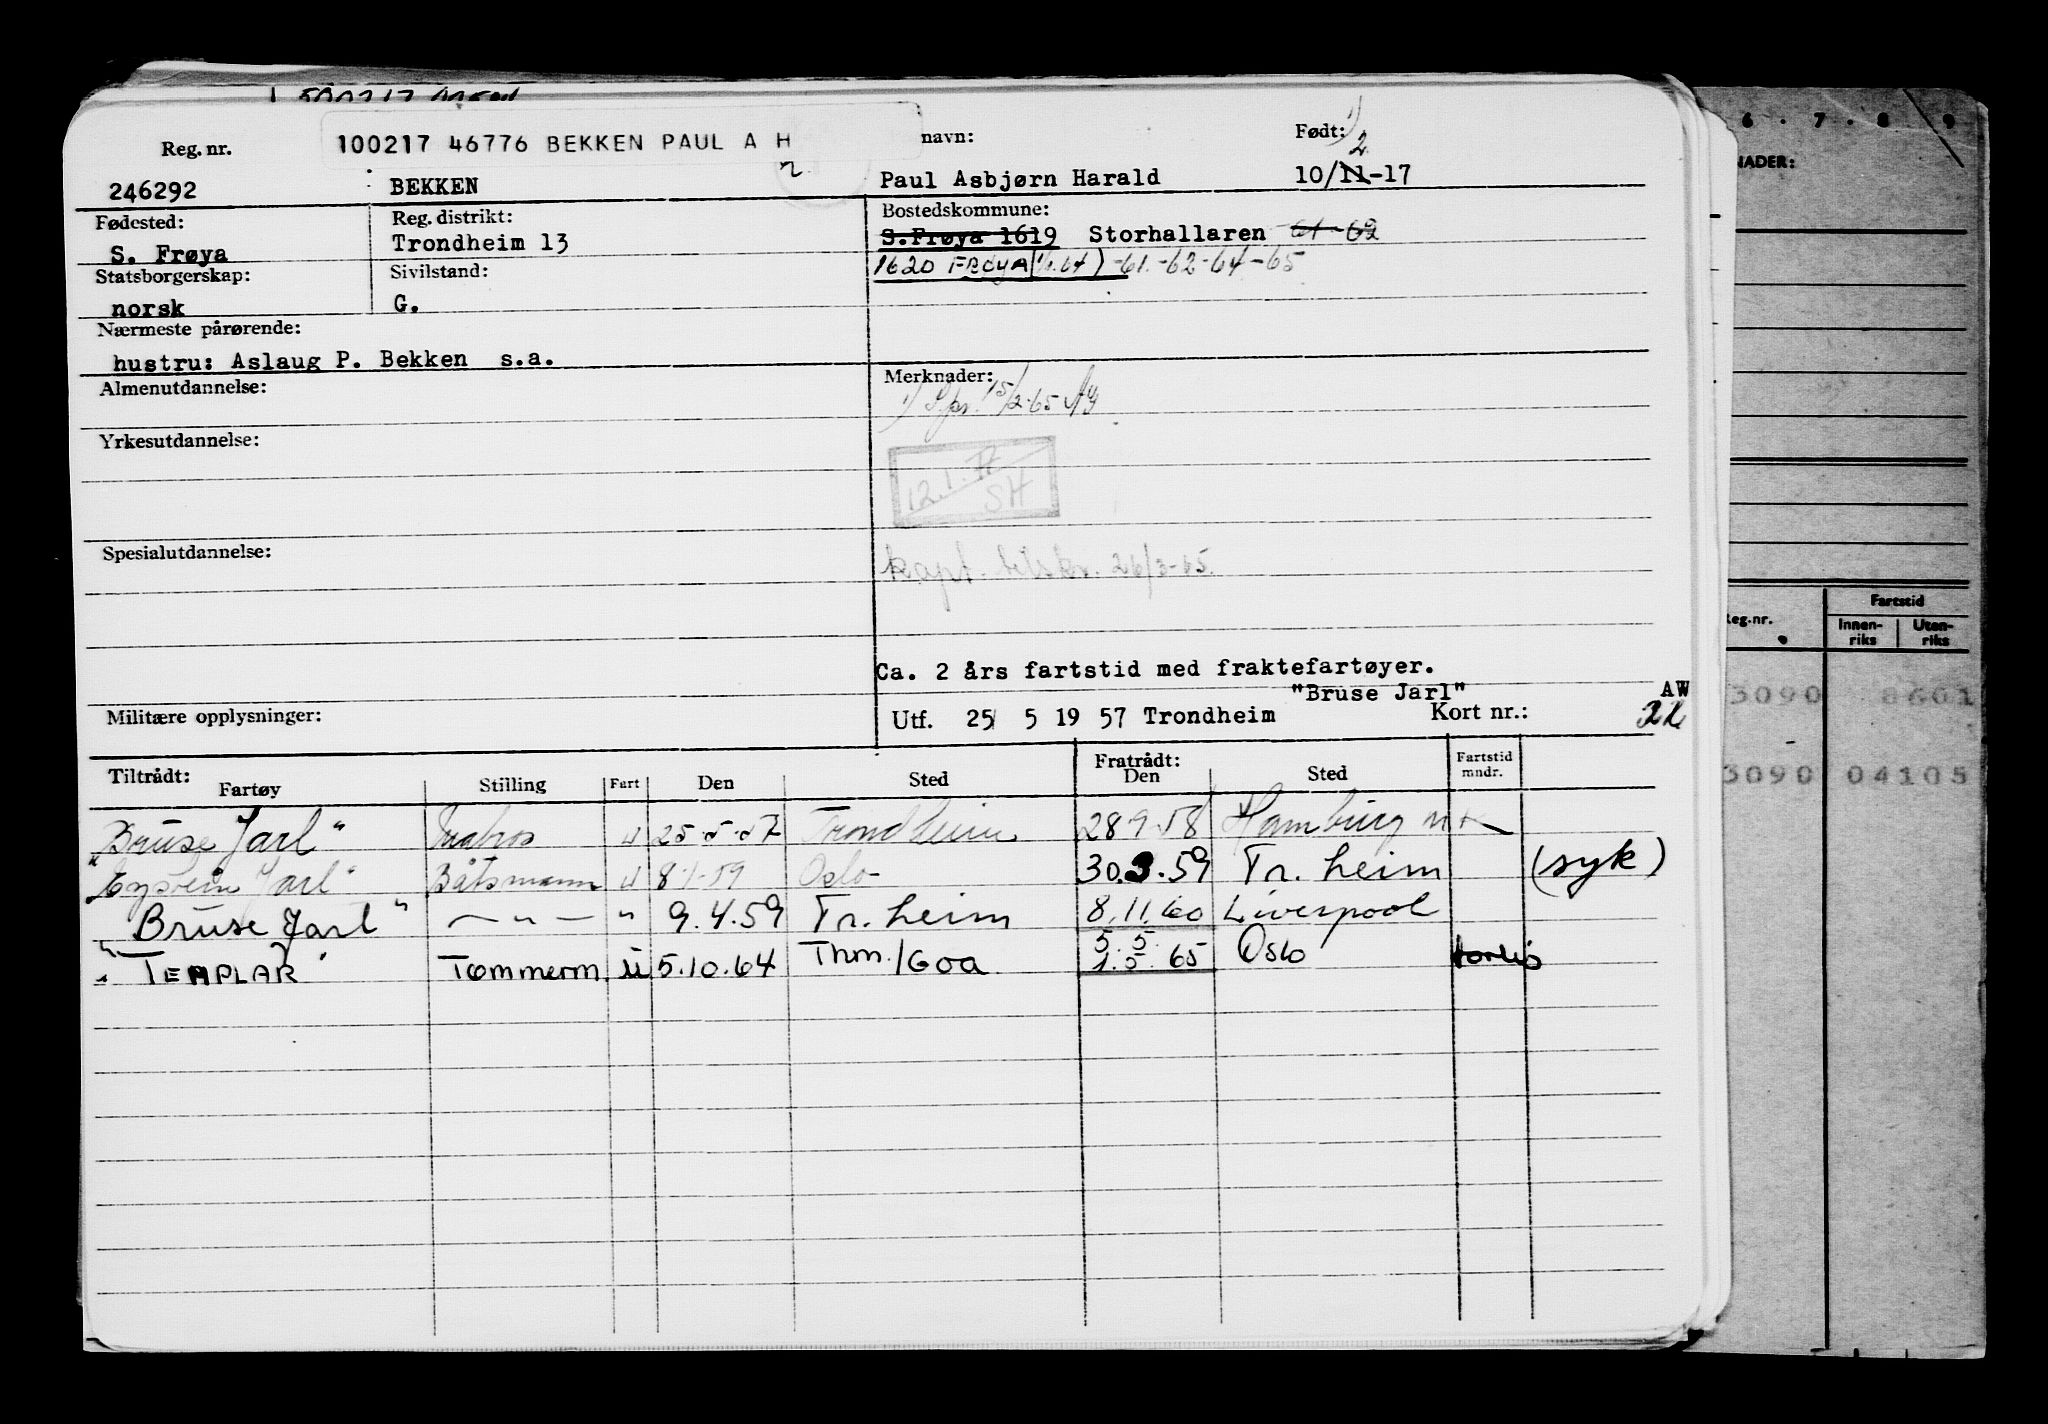 Reg. nr. 100217 46776 BEKKEN PAUL A H navn: Født: 1) 2
246292 BEKKEN Paul Asbjørn Harald 10/11-17
Fødested: Reg. distrikt: Bostedskommune:
S. Frøya Trondheim 13 S.Frøya 1619 Storhallaren 61-62
Statsborgerskap: Sivilstand: 1620 FRØYA (1/1.64) -61.-62-64-65
norsk G.
Nærmeste pårørende:
hustru: Aslaug P. Bekken s.a.
Almenutdannelse: Merknader:
1) 15/2-65
Yrkesutdannelse:
12.1.
SH
Spesialutdannelse: kapt. tilskr. 26/3-65.
Ca. 2 års fartstid med fraktefartøyer.
"Bruse Jarl" AW
Militære opplysninger: Utf. 25/ 5 19 57 Trondheim Kort nr.:
Tiltrådt: Fratrådt: Fartstid
Fartøy Stilling Fart Den Sted Den Sted mndr.
"Bruse Jarl" Matros U 25-5-57 Trondheim 28 9 58 Hamburg
"Eystein Jarl" Båtsmann U 8/1-59 Oslo 30.3.59 Tr.heim (syk)
"Bruse Jarl" — " — " 9.4.59 Tr.heim 8.11.60 Liverpool
"TEMPLAR" Tømmerm. U 5.10.64 Thm./Goa 5.5. 65 Oslo
6 . 7 . 8 . 9
NADER:
Reg.nr. Fartstid
Innen-
riks Uten-
riks
3090 8601
3090 04105